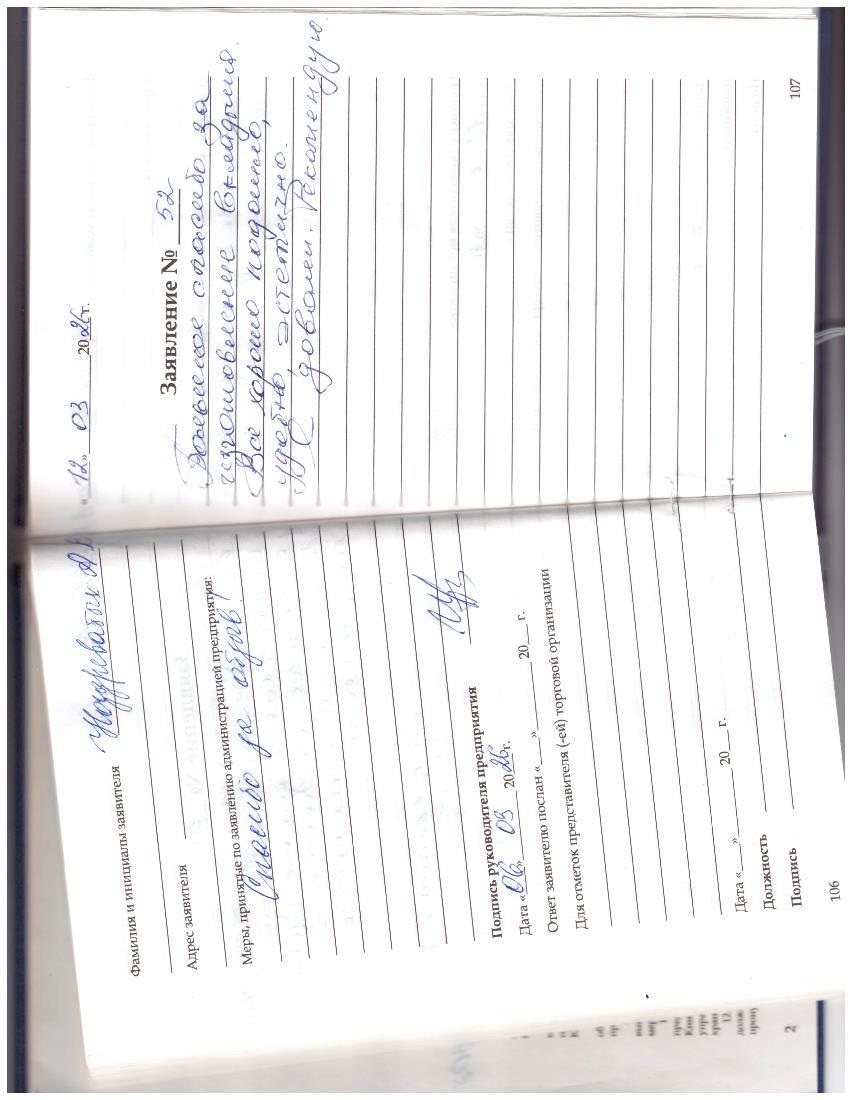 Фамилия и инициалы заявителя Ноздреватых А.
Адрес заявителя
Меры, принятые по заявлению администрацией предприятия:
Спасибо за отзыв!
Подпись руководителя предприятия
Дата «06» 03 2026 г.
Ответ заявителю послан «___» 20__ г.
Для отметок представителя (-ей) торговой организации
Дата «___» 20__ г.
Должность
Подпись
106
«12» 03 2026 г.
Заявление № 52
Душевное спасибо за
изготовление вкладыша.
Все хорошо подошло,
удобно, эстетично.
довольны. Рекомендую.
107
2